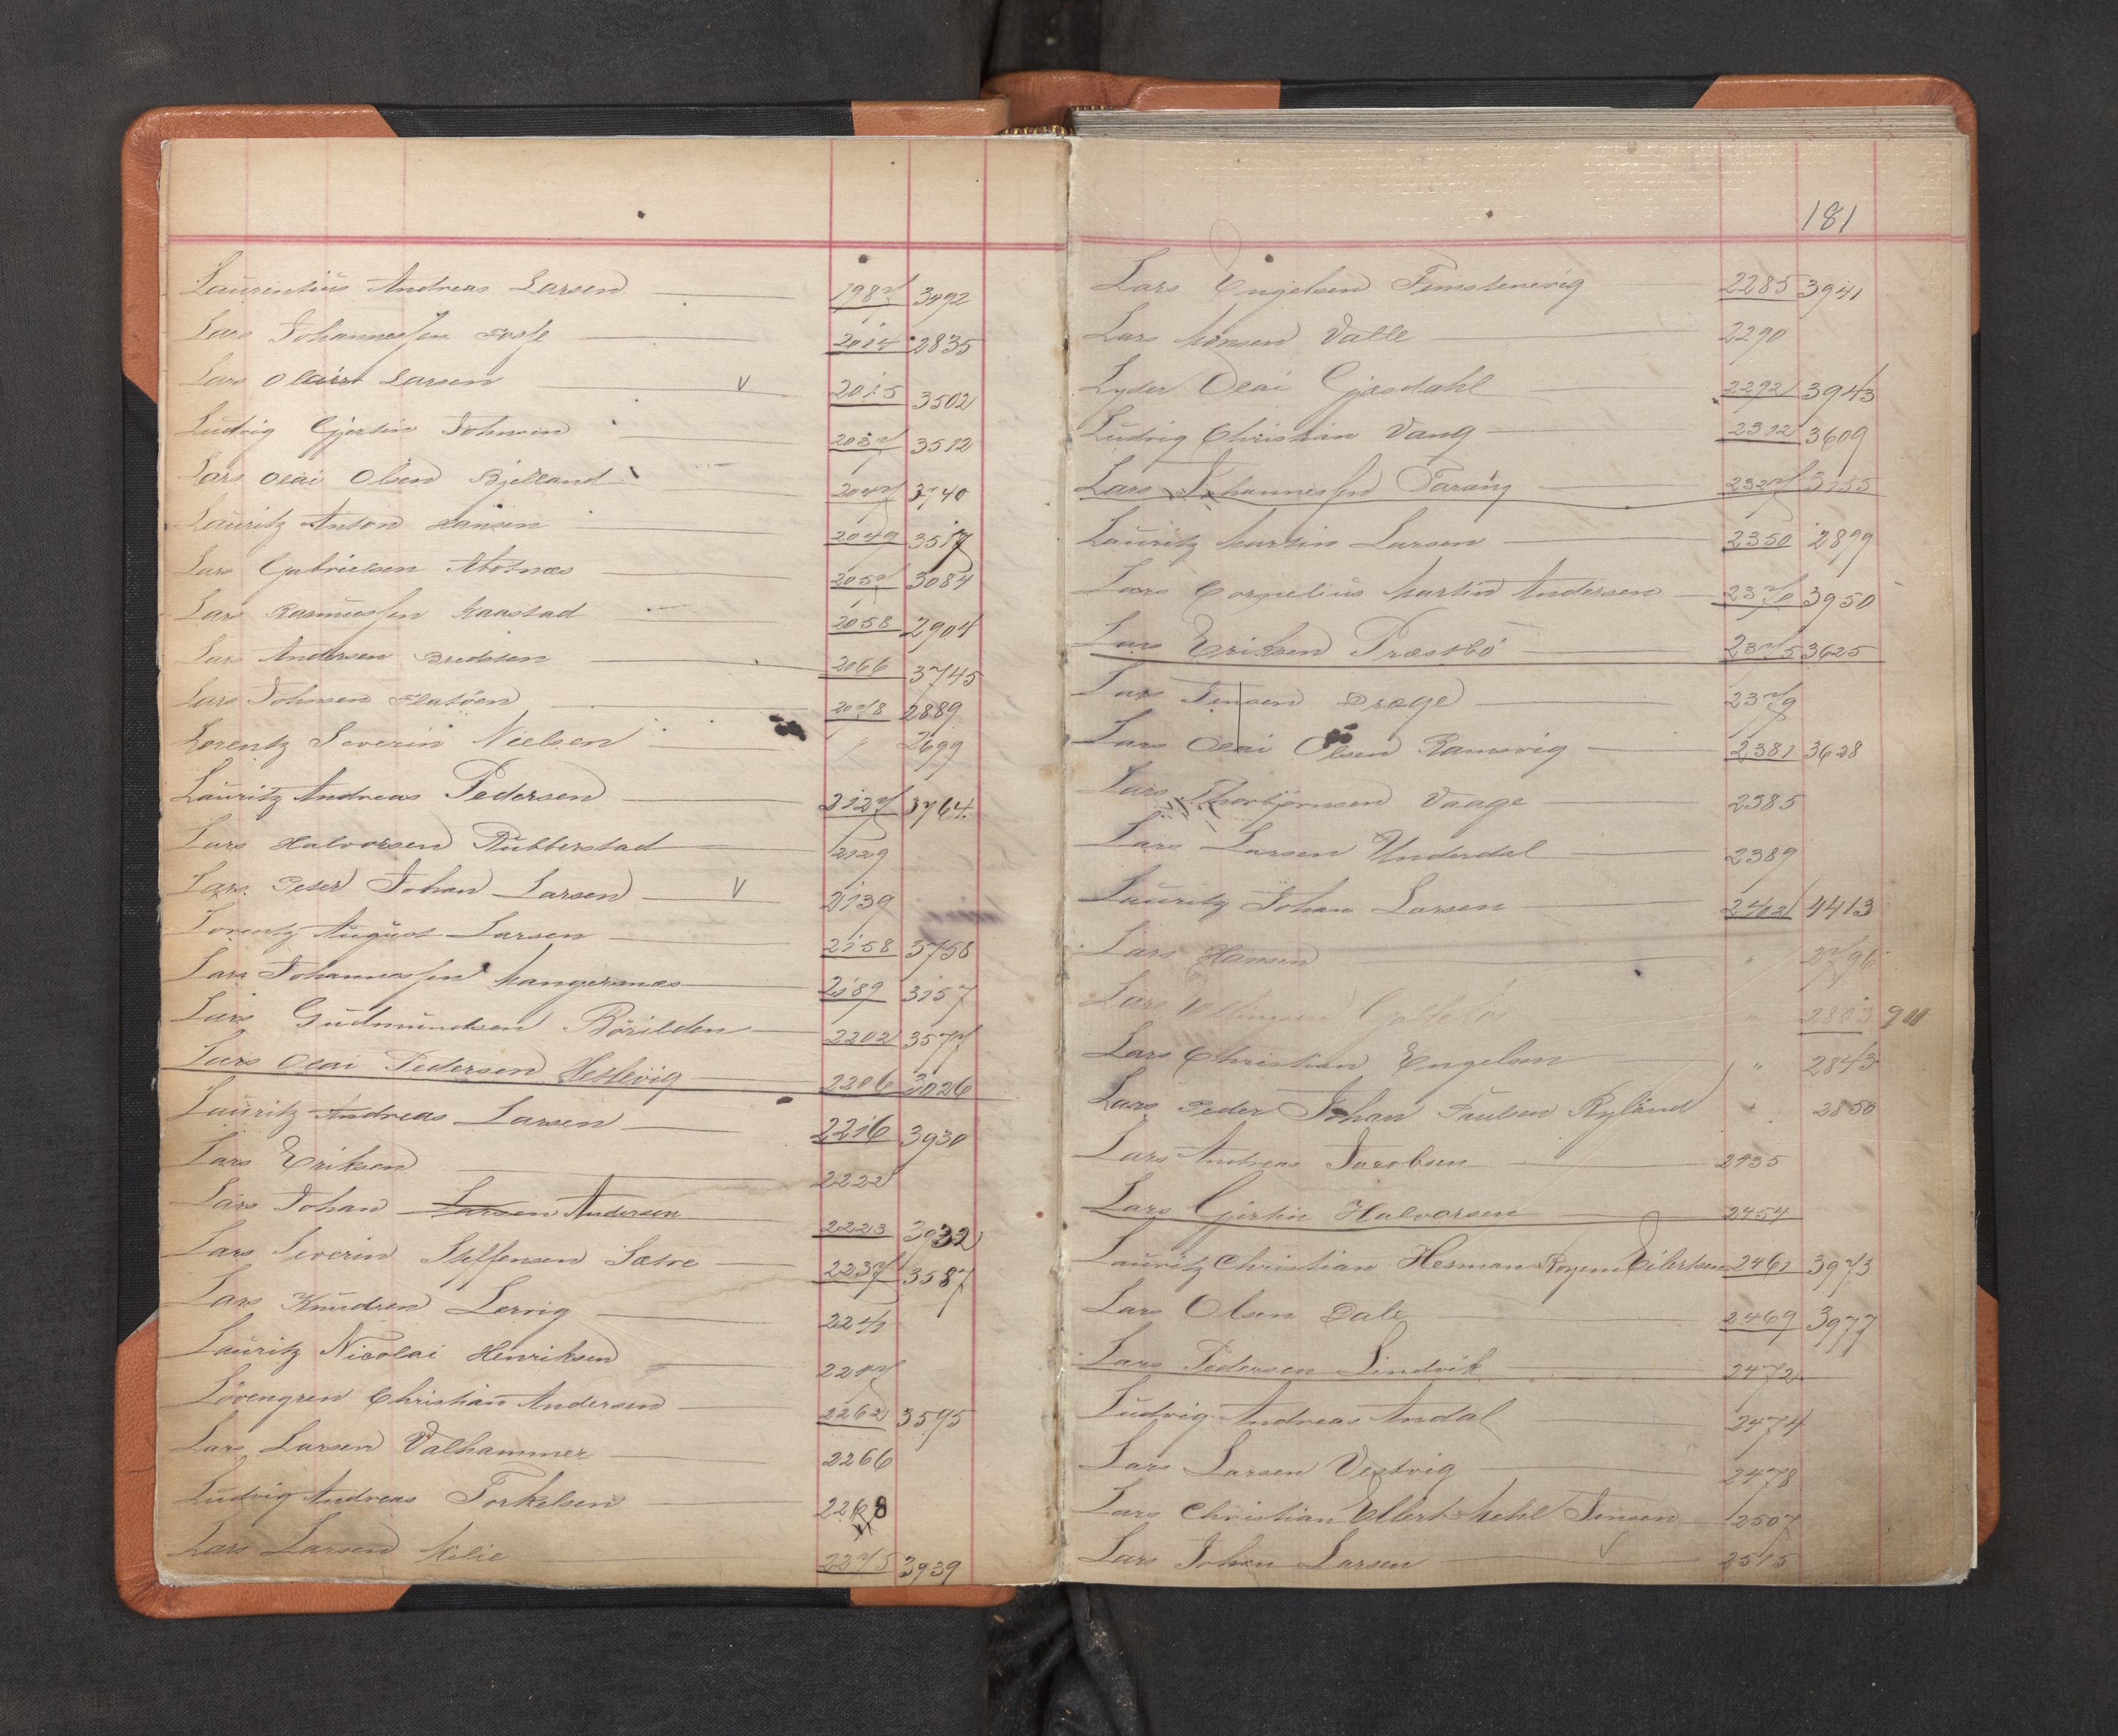 Laurentius Andreas Larsen 1987 3492
Lars Johannessen Fosse 2014 2835
Lars Olai Larsen V 2015 3502
Ludvig Gjertin Johnsen 2037 3512
Lars Olai Olsen Bjelland 2047 3740
Lauritz Anton Hansen 2049 3517
Lars Gabrielsen 2057 3084
Lars Rasmussen Kaastad 2058 2904
Lars Andersen Bredesen 2066 3745
Lars Johnsen Flatöen 2078 2889
Lorentz Severin Nielsen " 2699
Lauritz Andreas Pedersen 2127 3764
Lars Halvorsen Rubberstad 2129
Lars Peter Johan Larsen V 2139
Lorentz August Larsen 2158 3758
Lars Johannessen Mangersnæs 2189 3157
Lars Gudmundsen Börilden 2202 3577
Lars Olai Pedersen Hetlevig 2206 3026
Lauritz Andreas Larsen 2216 3930
Lars Eriksen 2222
Lars Johan Larsen Andersen 2223 3932
Lars Severin Steffensen Sætre 2237 3587
Lars Knudsen Lervig 2241
Lauritz Nicolai Henriksen 2247
Lövengren Christian Andersen 2262 3595
Lars Larsen Valhammer 2266
Ludvig Andreas Torkelsen 2268
Lars Larsen Milie 2275 3939
181
Lars Engelsen Fimstenevig 2285 3941
Lars Monsen Valle 2290
Lyder Olai Gjesdahl 2292 3943
Ludvig Christian Vang 2312 3609
Lars Johannessen Tarang 2327 3155
Lauritz Martin Larsen 2350 2899
Lars Cornelius Martin Andersen 2370 3950
Lars Eriksen Præstbö 2375 3625
Lars Jensen Drage 2379
Lars Olai Olsen Ramsvig 2381 3628
Lars Thorbjörnsen Vaage 2385
Lars Larsen Underdal 2389
Lauritz Johan Larsen 2402 4413
Lars Hansen " 2796
Lars " 2803 911
Lars Christian Engelsen " 2843
Lars Peder Johan Paulsen Rylund " 2850
Lars Andreas Jacobsen 2435
Lars Gjertin Halvorsen 2454
Lauritz Christian Herman Eilertsen 2461 3973
Lars Olsen Dale 2469 3977
Lars Pedersen Lindvik 2472
Ludvig Andreas Andal 2474
Lars Larsen Vestvig 2478
Lars Christian Ellert Mehl Jensen 2507
Lars Johan Larsen V 2515